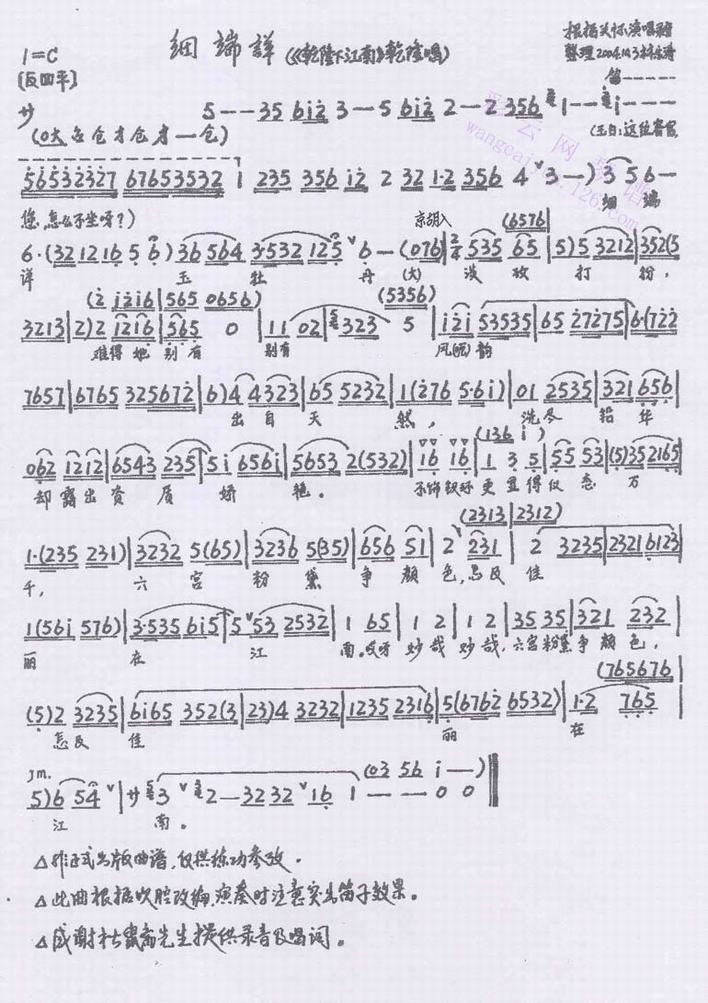 細端詳(《乾隆下江南》乾隆唱)
1=C
(反四平)
根据关怀演唱录音
整理2004.10.3
笛-----
サ 5--35 6i2 3--5 6i2 2--2 356 1--i----
(0大 台 仓 才 仓 才 一 仓)
(王白:这位客官
565532327 67653532 1 235 356 i2 2 32 1·2 356 4 3-) 3 5 6-
您,怎么不坐呀?) 细 端
京胡入 (6576)
6·(32 1216 5 6) 36 564 3·532 125 6-(076) 2/4 535 65 |5)5 3212|352(5
详 玉 牡 丹 (大) 淡 妆 打 扮,
(2 i2i6|565 0656) (5356)
3213|2)2 1216|565 0 |11 02|323 5 |i2i 53535|65 27275|6·(722
难得她别有 别有 风(呃)韵
7657|6765 325672|6)4 4323|65 5232|1(276 5·6i)|01 2535|321 656|
出自天然, 洗尽铅华
(136 i)
062 1212|6543 235|5i 656i|5653 2(532)|16 16|1 3 5|55 53|(5)35 2165|
却露出资质娇艳。 不饰钗环更显得仪态万
(2313|2312)
1·(235 231)|3232 5(65)|3236 5(35)|656 51|2 231|2 3235|2321 6123|
千, 六宫粉黛争颜色,怎及佳
1(56i 576)|3·535 6i5|5 53 2532|1 65|1 2|1 2|35 35|321 232|
丽 在 江 南。哎呀妙哉妙哉,六宫粉黛争颜色,
(765676|
(5)2 3235|6i65 352(3|23)4 3232|1235 2316|5(6762 6532)|1·2 765|
怎及佳 丽 在
(03 56 i -)
5)6 54|サ 3 2-3232 16 1--00
江 南。
△非正式出版曲谱,仅供练功参改。
△此曲根据吹腔改编,演奏时注意突出笛子效果。
△感谢杜先生提供录音及唱词。